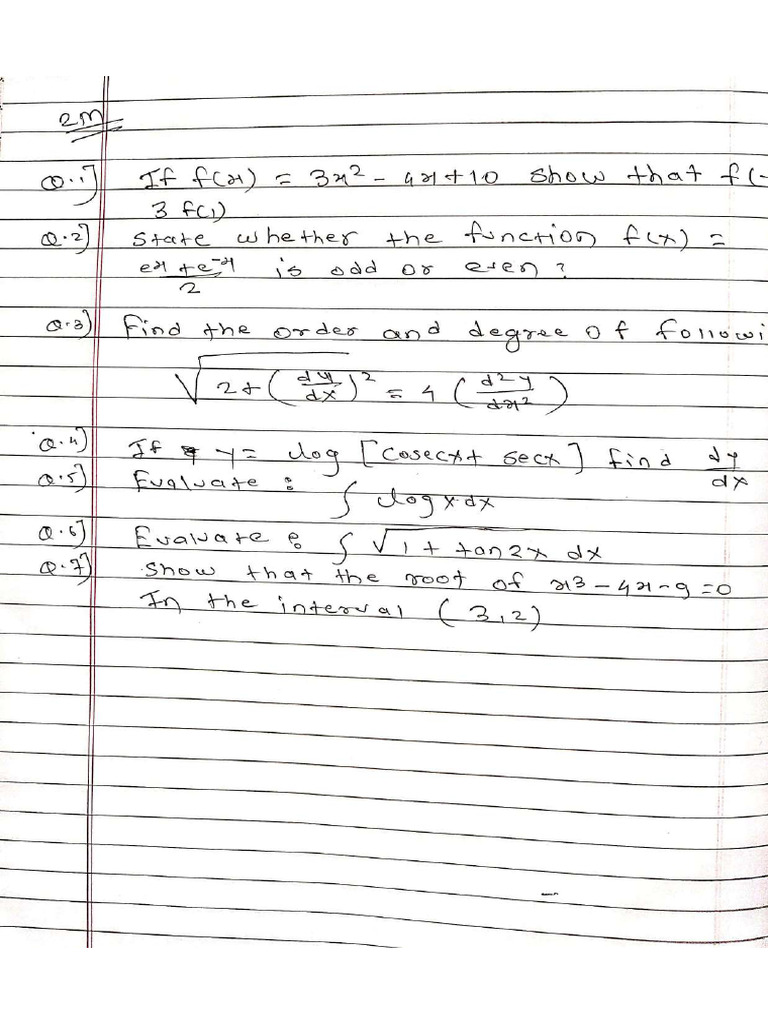 2M
Q.1] If f(x) = 3x² - 4x+10 show that f(-
3 f(1)
Q.2] State whether the function f(x) =
(eˣ+e⁻ˣ)/2 is odd or even?
Q.3] Find the order and degree of followi
√(2+(dy/dx)²) = 4 (d²y/dx²)
Q.4] If y = log [cosecx+ secx] find dy/dx
Q.5] Evaluate : ∫ log x.dx
Q.6] Evaluate : ∫ √(1 + tan2x) dx
Q.7] Show that the root of x³-4x-9=0
In the interval (3,2)